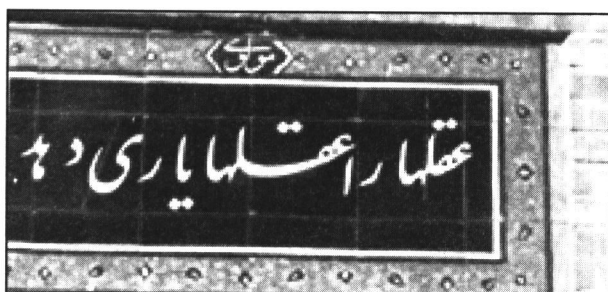 مولوی
عقلها را عقلها یاری دهد